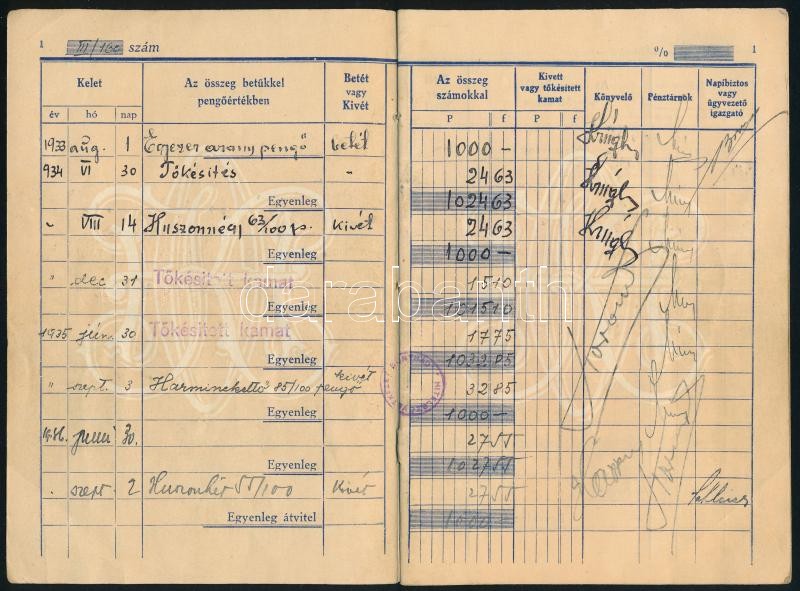 1 III/160 szám
Kelet
év hó nap
Az összeg betűkkel
pengőértékben
Betét
vagy
Kivét
1933 aug. 1 Egyezer arany pengő betét
934 VI 30 Tőkésités "
Egyenleg
" VIII 14 Huszonnégy 63/100 p. Kivét
Egyenleg
" dec 31 Tőkésitett kamat
Egyenleg
1935 jún. 30 Tőkésitett kamat
Egyenleg
" szept. 3 Harminckettő 85/100 pengő kivét
Egyenleg
1936. juni 30.
Egyenleg
" szept. 2 Huszonhét 55/100 Kivét
Egyenleg átvitel
% 1
Az összeg
számokkal
P f
Kivett
vagy tőkésített
kamat
P f
Könyvelő
Pénztárnok
Napibiztos
vagy
ügyvezető
igazgató
1000 –
24 63
1024 63
24 63
1000 –
15 10
1015 10
17 75
1032 85
32 85
1000 –
27 55
1027 55
27 55
1000 –
darabanth